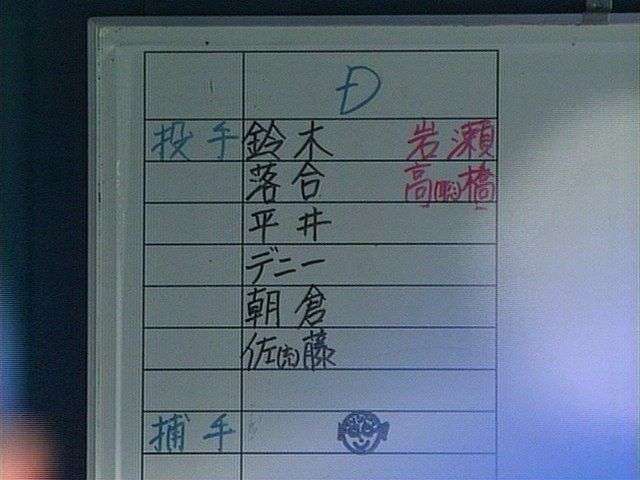 D
投手 鈴木 岩瀬
落合 高(聡)橋
平井
デニー
朝倉
佐(内)藤
捕手